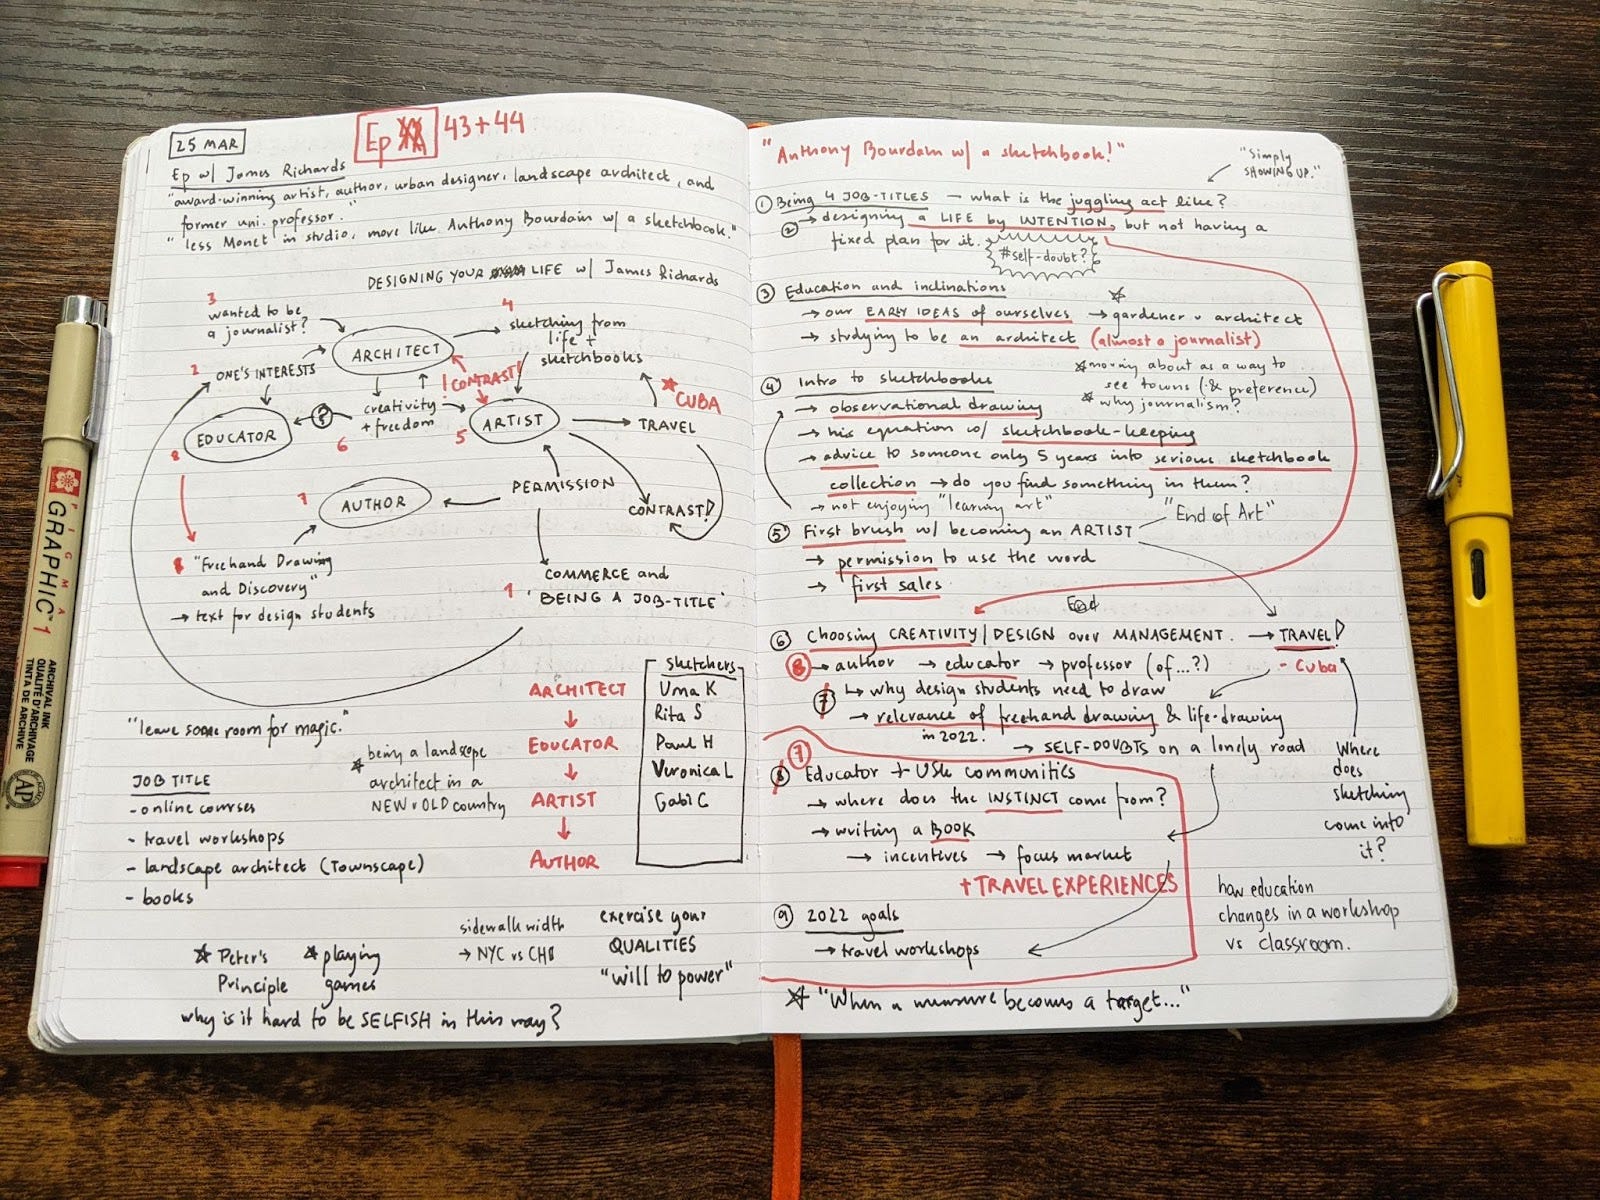 25 MAR
Ep 43+44
Ep w/ James Richards
"award-winning artist, author, urban designer, landscape architect, and
former uni. professor."
"less Monet in studio, more like Anthony Bourdain w/ a sketchbook."
DESIGNING YOUR LIFE w/ James Richards
3
wanted to be
a journalist?
4
sketching from
life +
sketchbooks
ARCHITECT
2
ONE'S INTERESTS
! CONTRAST!
CUBA
creativity
+ freedom
?
6
5
ARTIST
TRAVEL
EDUCATOR
8
7
AUTHOR
PERMISSION
CONTRAST!
8 "Freehand Drawing
and Discovery"
→ text for design students
9
COMMERCE and
'BEING A JOB-TITLE'
"leave some room for magic."
JOB TITLE
- online courses
- travel workshops
- landscape architect (Townscape)
- books
being a landscape
architect in a
NEW v OLD country
ARCHITECT
↓
EDUCATOR
↓
ARTIST
↓
AUTHOR
Sketchers
Uma K
Rita S
Paul H
Veronica L
Gabi C
Peter's
Principle
playing
games
sidewalk width
→ NYC vs CHD
exercise your
QUALITIES
"will to power"
why is it hard to be SELFISH in this way?
"Anthony Bourdain w/ a sketchbook!"
"Simply
SHOWING UP."
① Being 4 JOB-TITLES – what is the juggling act like?
② → designing a LIFE by INTENTION, but not having a
fixed plan for it.
#self-doubt?
③ Education and inclinations
→ our EARLY IDEAS of ourselves → gardener v architect
→ studying to be an architect (almost a journalist)
moving about as a way to
see towns (& preference)
why journalism?
④ Intro to sketchbooks
→ observational drawing
→ his equation w/ sketchbook-keeping
→ advice to someone only 5 years into serious sketchbook
collection → do you find something in them?
→ not enjoying "learning art"
⑤ First brush w/ becoming an ARTIST
"End of Art"
→ permission to use the word
→ first sales
⑥ Choosing CREATIVITY/DESIGN over MANAGEMENT. → TRAVEL!
- Cuba
⑧ → author → educator → professor (of...?)
⑦ ↳ why design students need to draw
→ relevance of freehand drawing & life-drawing
in 2022.
→ SELF-DOUBTS on a lonely road
⑦
⑧ Educator + USk communities
→ where does the INSTINCT come from?
→ writing a BOOK
→ incentives → focus market
+ TRAVEL EXPERIENCES
Where
does
sketching
come into
it?
how education
changes in a workshop
vs classroom.
⑨ 2022 goals
→ travel workshops
"When a measure becomes a target..."
PIGMA
GRAPHIC™ 1
ARCHIVAL INK
QUALITÉ D'ARCHIVAGE
TINTA DE ARCHIVE
AP